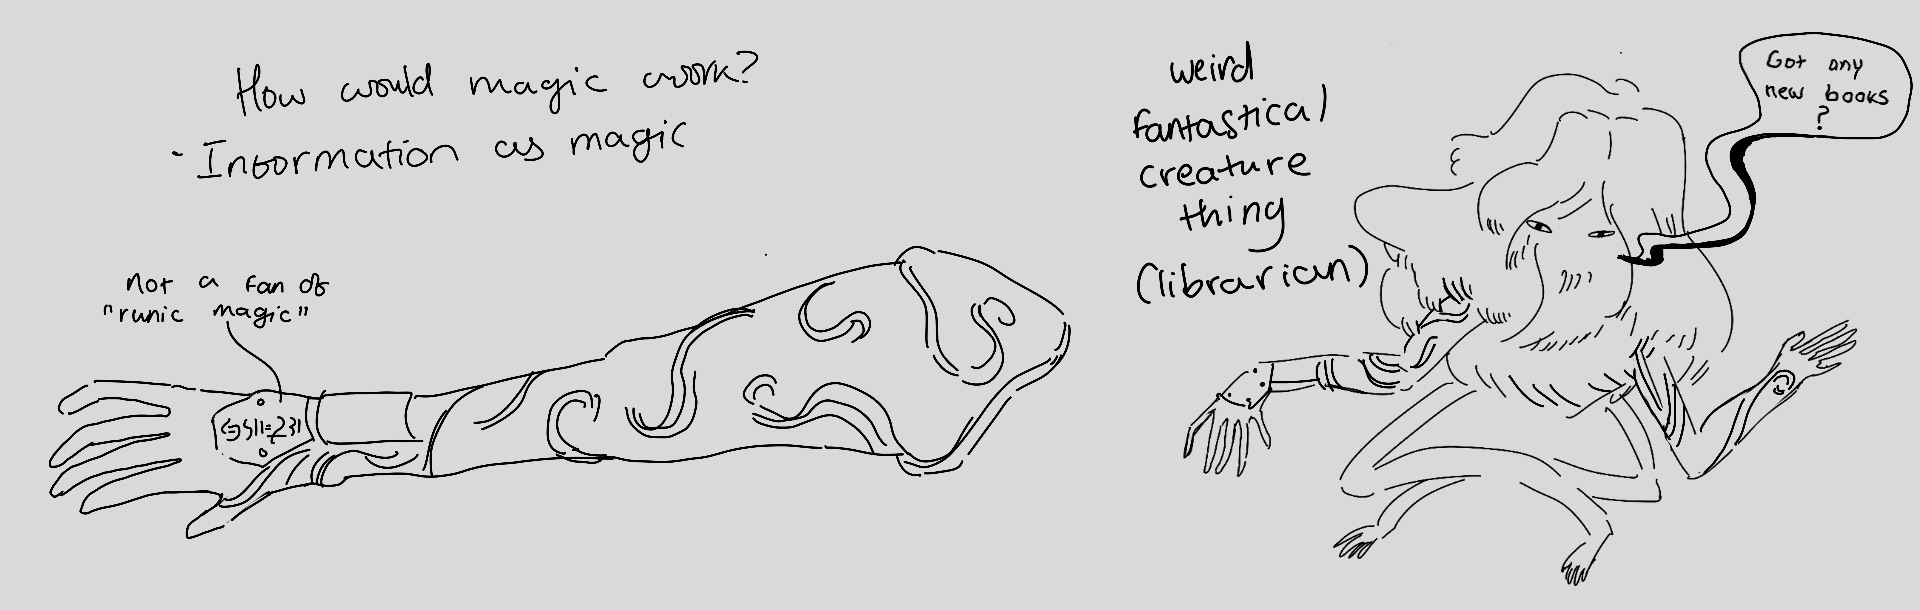 How would magic work?
- Information as magic
Not a fan of
"runic magic"
weird
fantastical
creature
thing
(librarian)
Got any
new books
?